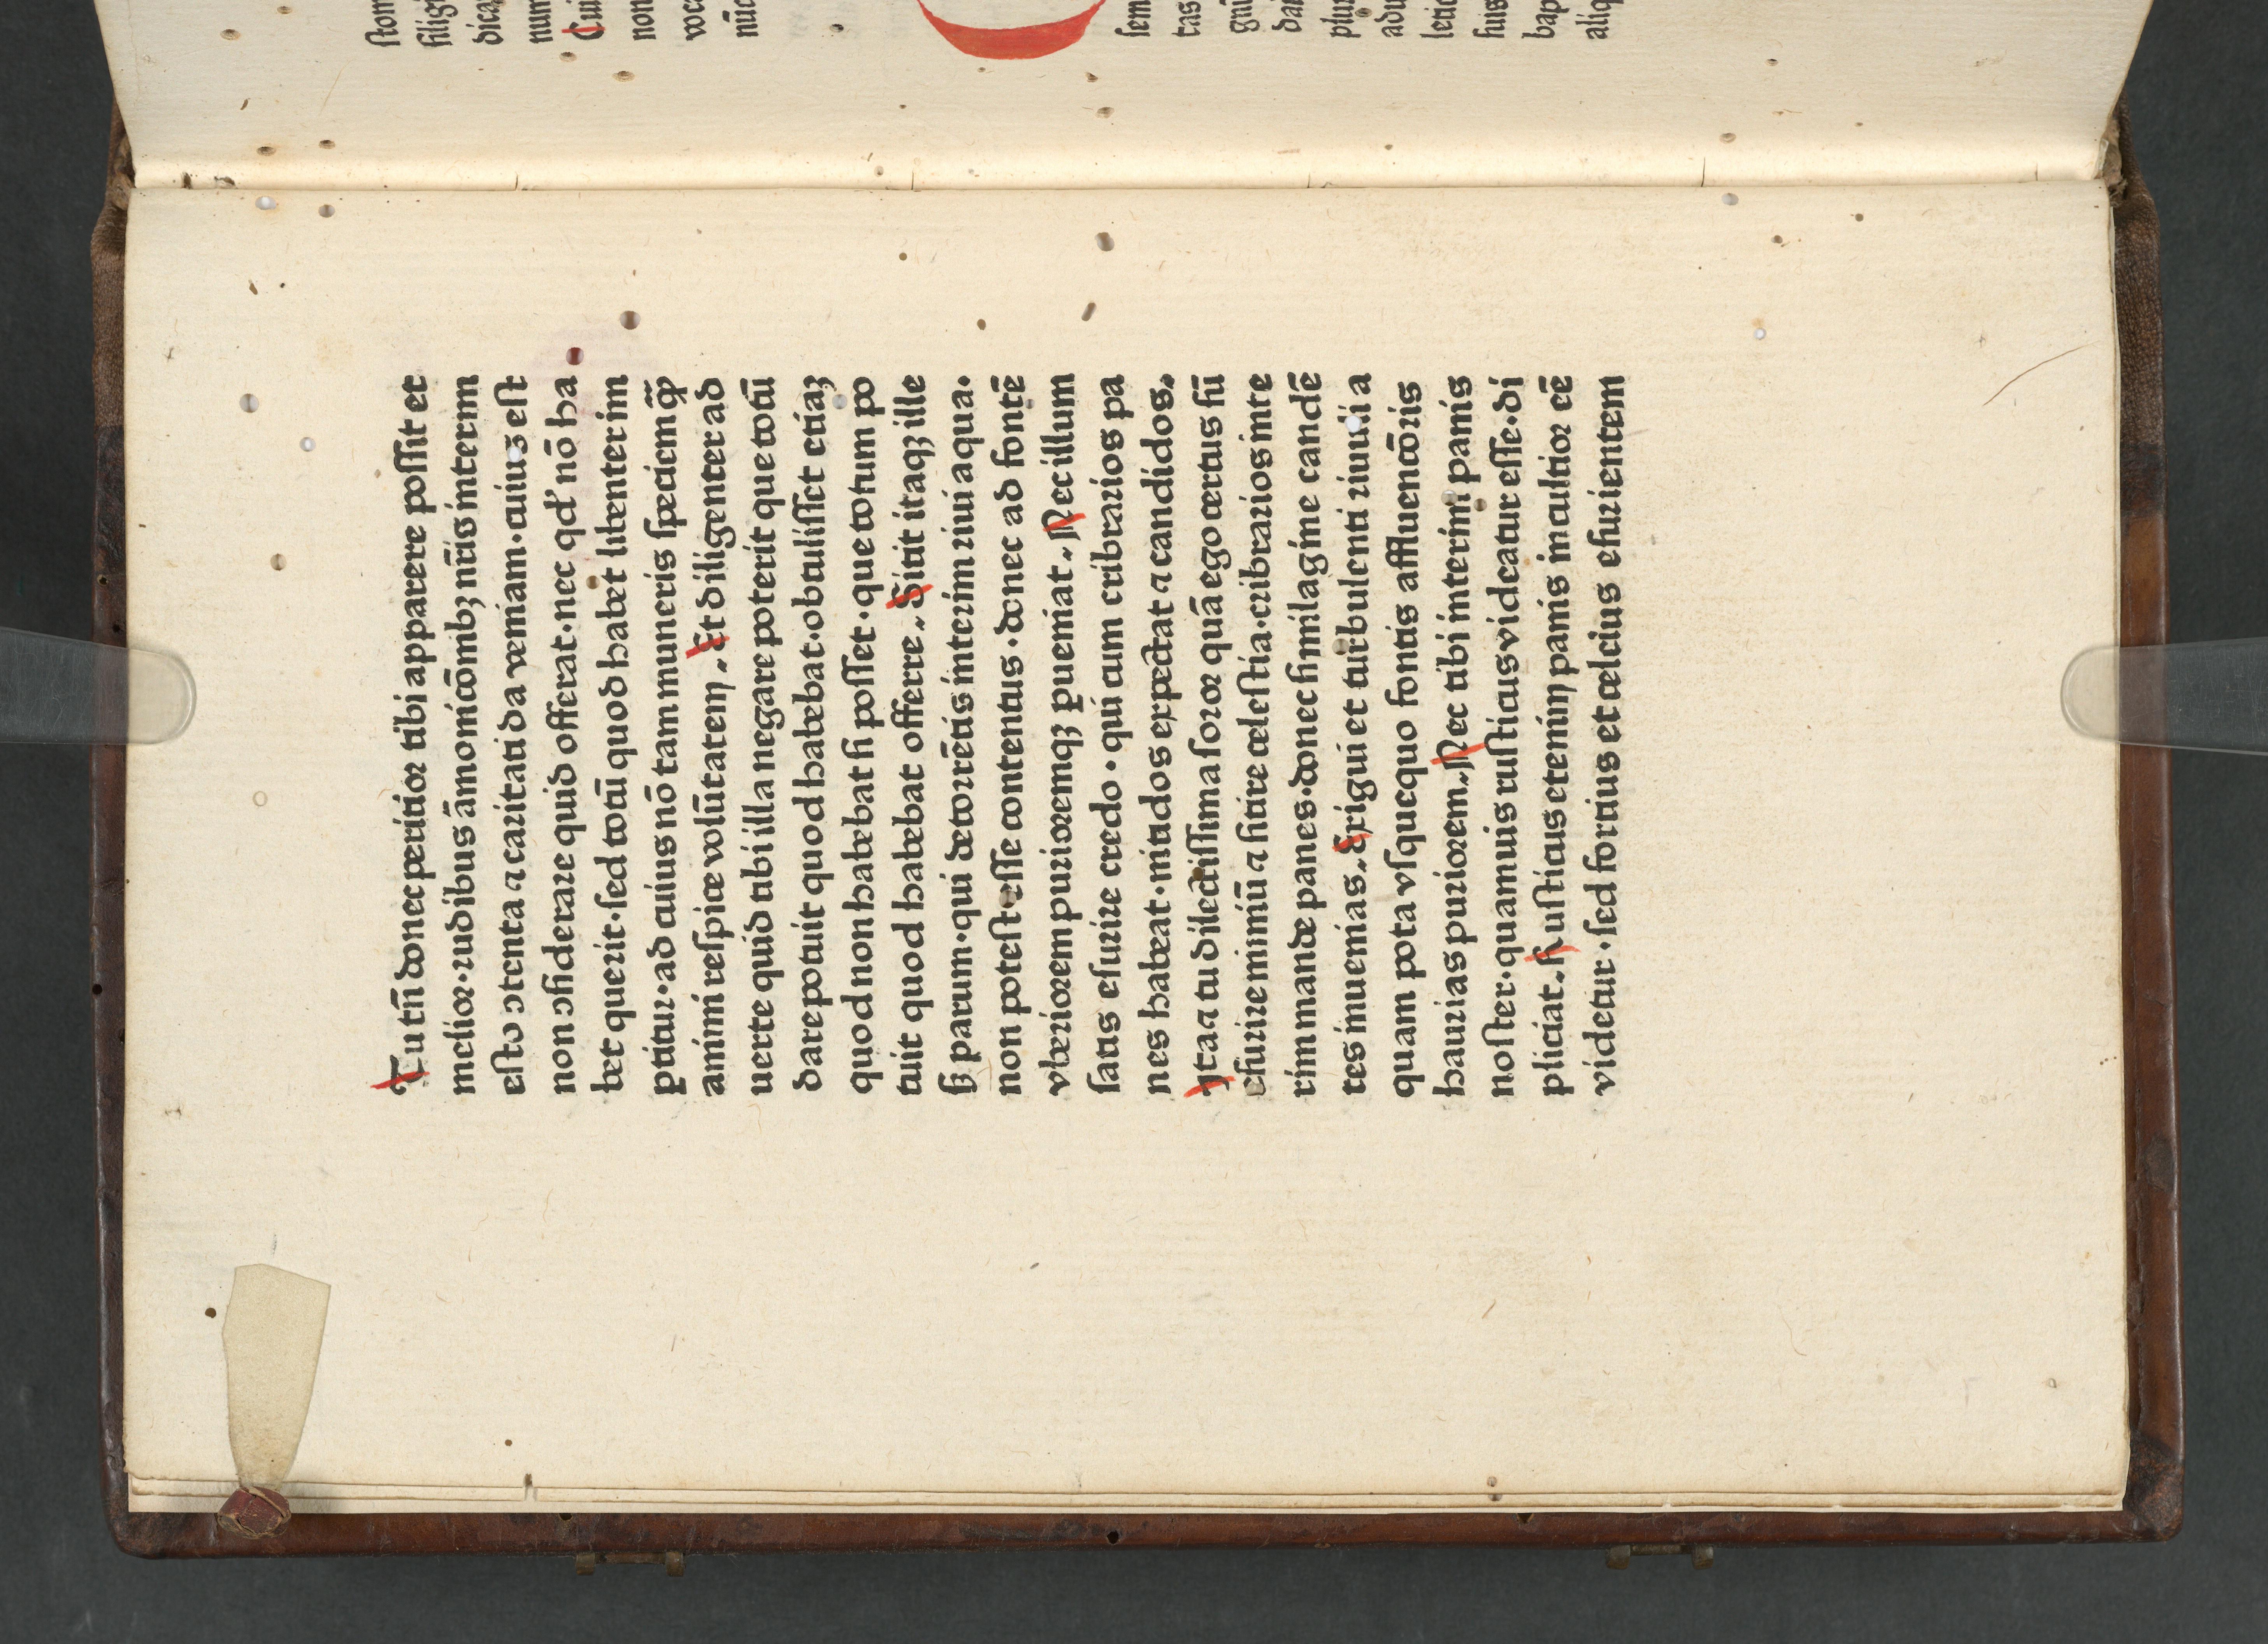 ſtom
ſiligi
dica
num
Cui
non
voca
nūc
ſem
tas
gnū
dar
plur
adu
letic
huis
bap
aliq
Tu tn̄ donec peritior tibi apparere poſſit et
melior·rudibus āmonicōnibꝫ nr̄is interim
eſto ↄtenta ⁊ caritati da veniam·cuiuſ eſt
non ↄſiderare quid offerat·nec qd' nō ha
bet querit·ſed totū quod habet libenter im
ꝑtitur·ad cuius nō tam muneris ſpeciem qꝫ
animi reſpice volūtatem. Et diligenter ad
uerte quid tibi illa negare poterit que totū
dare potuit quod habebat·obtuliſſet etiaꝫ
quod non habebat ſi poſſet·que totum po
tuit quod habebat offerre. Sitit itaqꝫ ille
ſꝫ parum·qui de torrētis interim riui aqua·
non poteſt eſſe contentus·donec ad fontē
vberiorem puriοremqꝫ ꝑueniat. Nec illum
ſatis eſurire credo·qui cum cribrarios pa
nes habeat·nitidos expectat ⁊ candidos.
Ita ⁊ tu dilectiſſima ſoror quā ego certus ſū
eſurire nimiū ⁊ ſitire celeſtia·cribrarios inte
rim mande panes·donec ſimilagine candē
tes inuenias. Exigui et turbulenti riuuli a
quam pota vſquequo fontis affluencōris
haurias puriorem. Nec tibi interim panis
noſter·quamuis ruſticus videatur eſſe·di
pliciat. Ruſticus etenim panis incultior eē
videtur·ſed fortius et celcius eſurientem